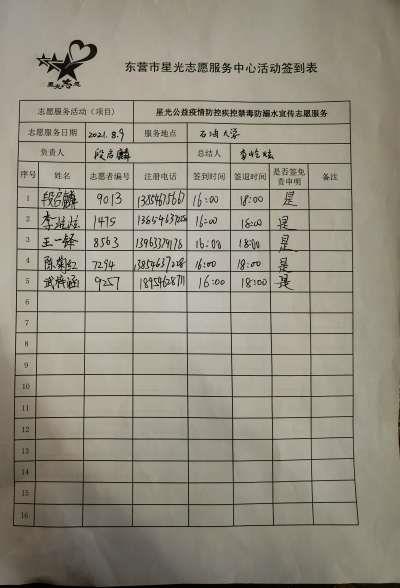 星光志愿
东营市星光志愿服务中心活动签到表
志愿服务活动(项目) 星光公益疫情防控疾控禁毒防溺水宣传志愿服务
志愿服务日期 2021.8.9 服务地点 石油大学
负责人 段启麟 总结人
序号 姓名 志愿者编号 注册电话 签到时间 签退时间 是否签免责申明 备注
1 段启麟 9013 16:00 18:00 是
2 1475 16:00 18:00 是
3 王一铎 8563 16:00 18:00 是
4 陈菊红 7294 16:00 18:00 是
5 武梓涵 9257 16:00 18:00 是
6
7
8
9
10
11
12
13
14
15
16